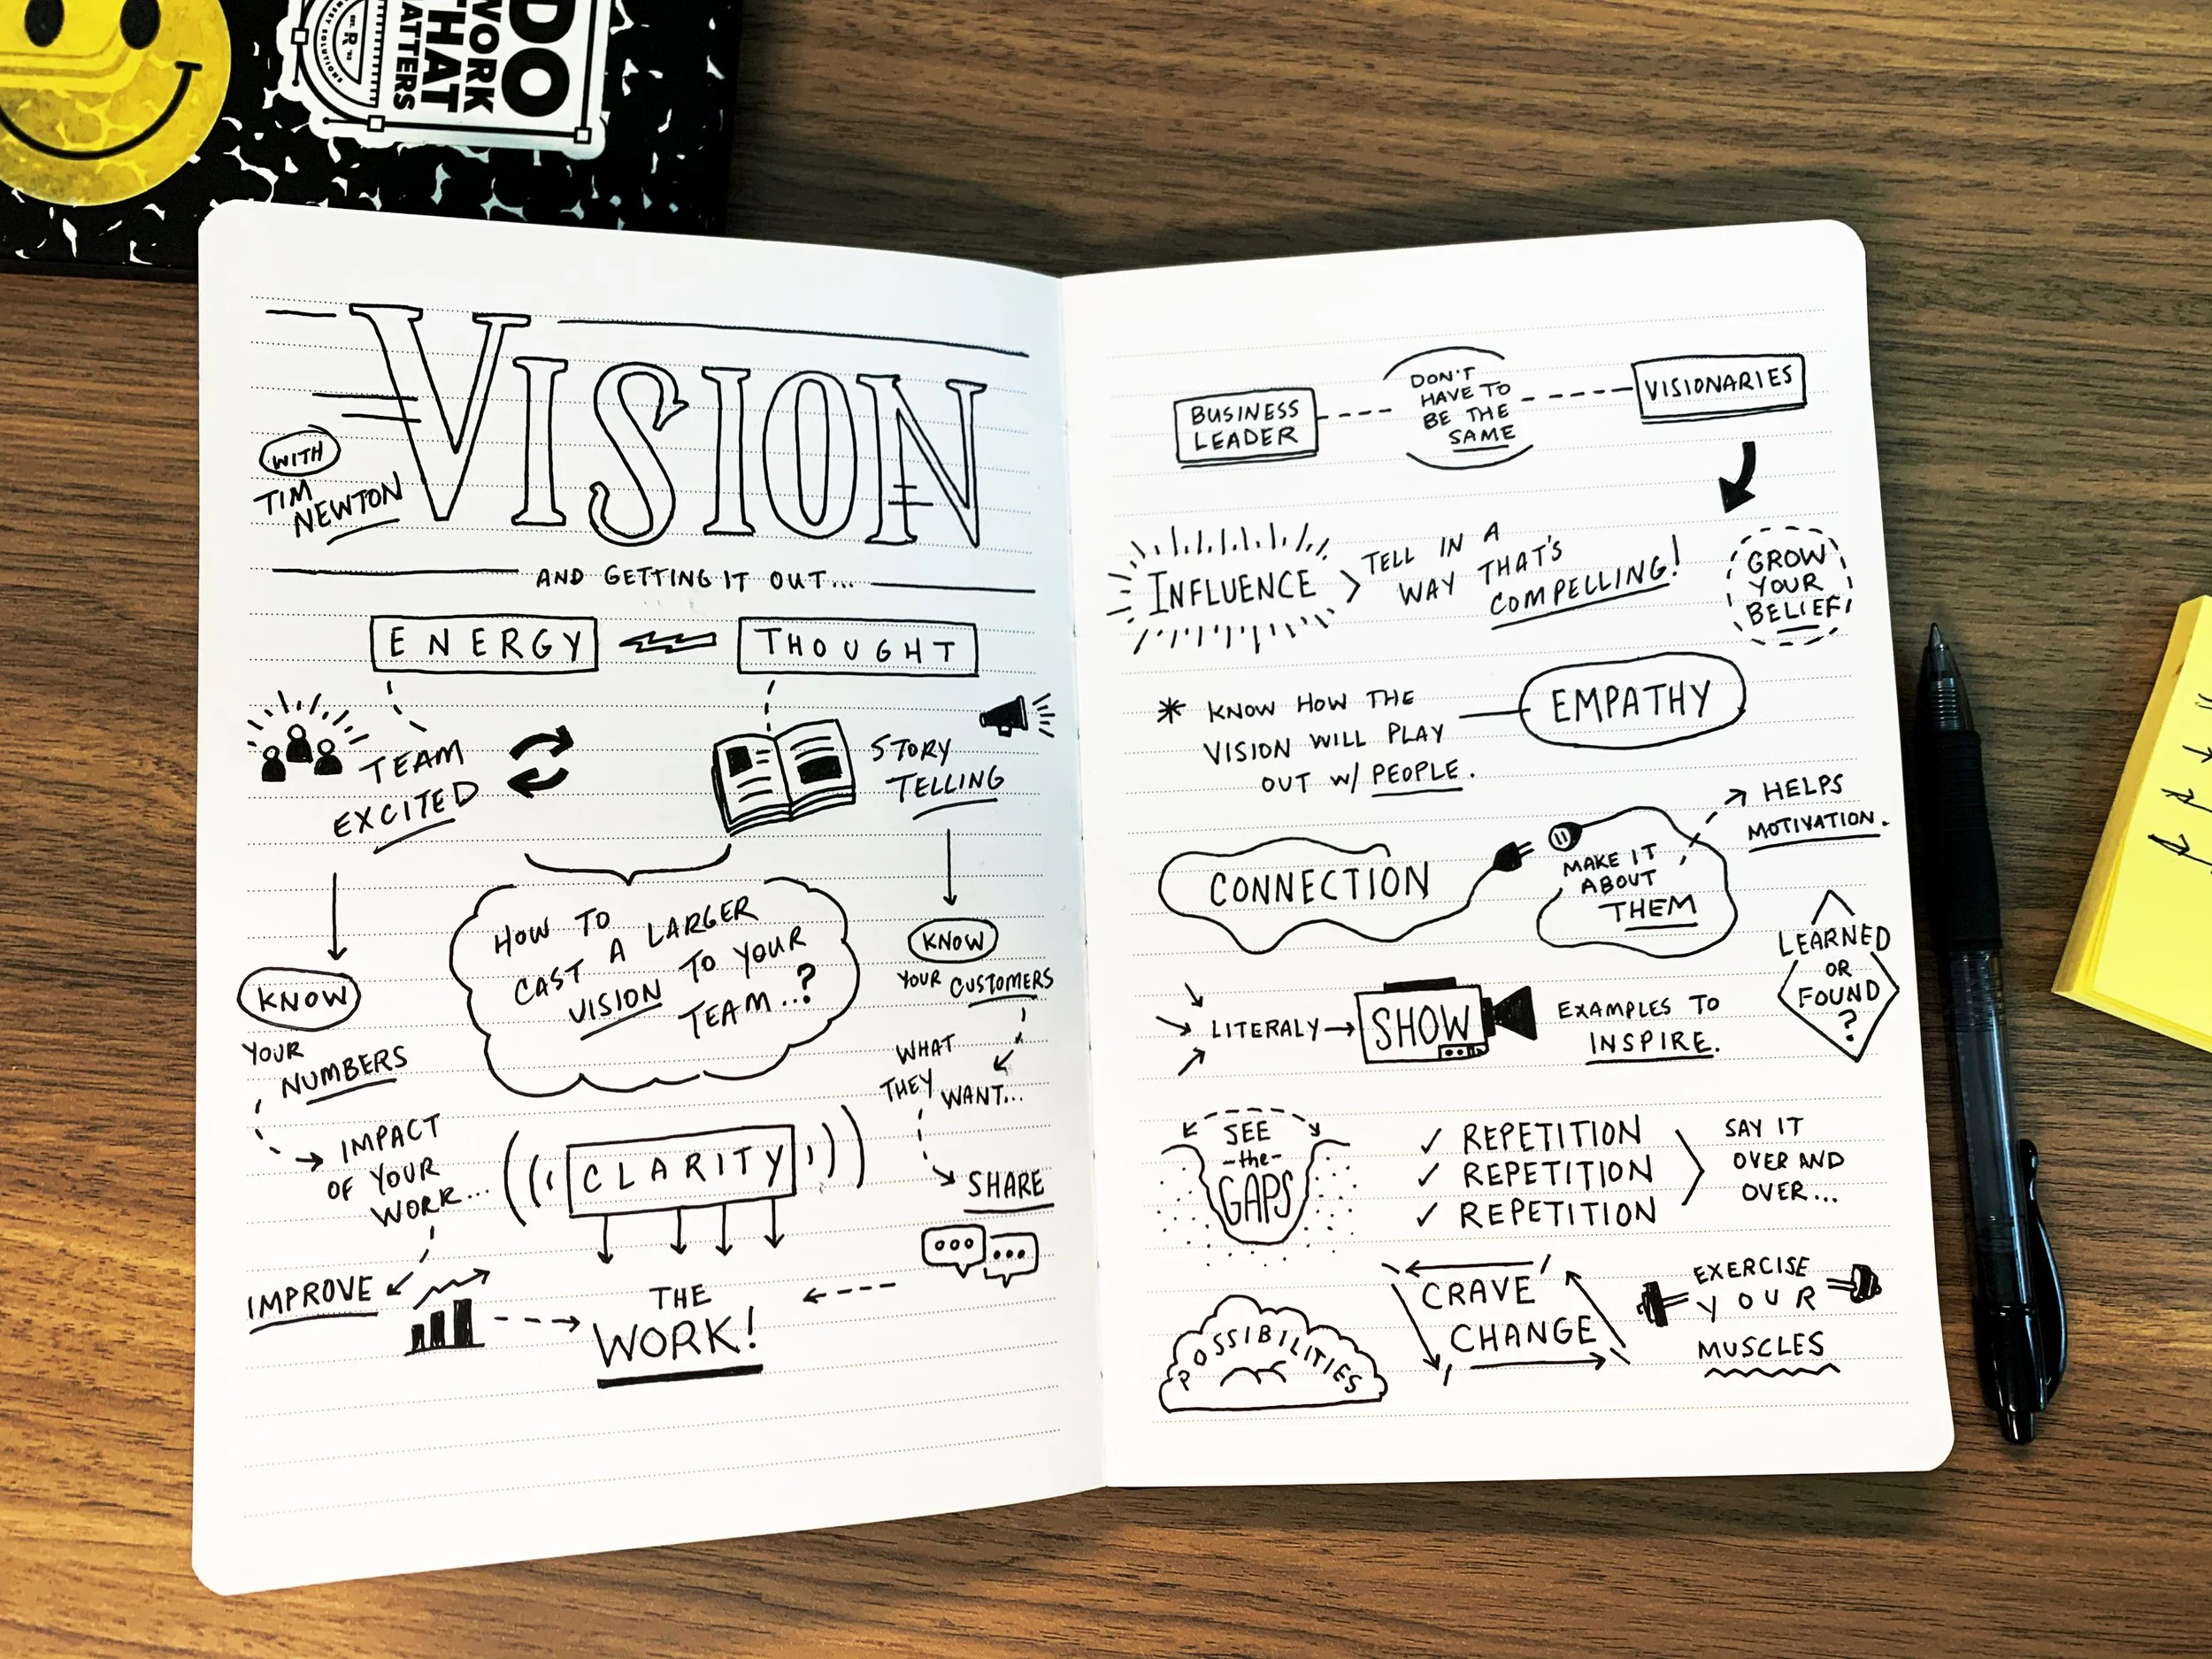 DO
WORK
THAT
MATTERS
VISION
WITH
TIM
NEWTON
AND GETTING IT OUT...
ENERGY
THOUGHT
TEAM
EXCITED
STORY
TELLING
HOW TO
CAST A LARGER
VISION TO YOUR
TEAM..?
KNOW
YOUR
NUMBERS
IMPACT
OF YOUR
WORK...
IMPROVE
KNOW
YOUR CUSTOMERS
WHAT
THEY WANT...
SHARE
CLARITY
THE
WORK!
BUSINESS
LEADER
DON'T
HAVE TO
BE THE
SAME
VISIONARIES
INFLUENCE
TELL IN A
WAY THAT'S
COMPELLING!
GROW
YOUR
BELIEF!
* KNOW HOW THE
VISION WILL PLAY
OUT w/ PEOPLE.
EMPATHY
CONNECTION
MAKE IT
ABOUT
THEM
HELPS
MOTIVATION.
LITERALY
SHOW
EXAMPLES TO
INSPIRE.
LEARNED
OR
FOUND
?
SEE
-the-
GAPS
✓ REPETITION
✓ REPETITION
✓ REPETITION
SAY IT
OVER AND
OVER...
POSSIBILITIES
CRAVE
CHANGE
EXERCISE
YOUR
MUSCLES